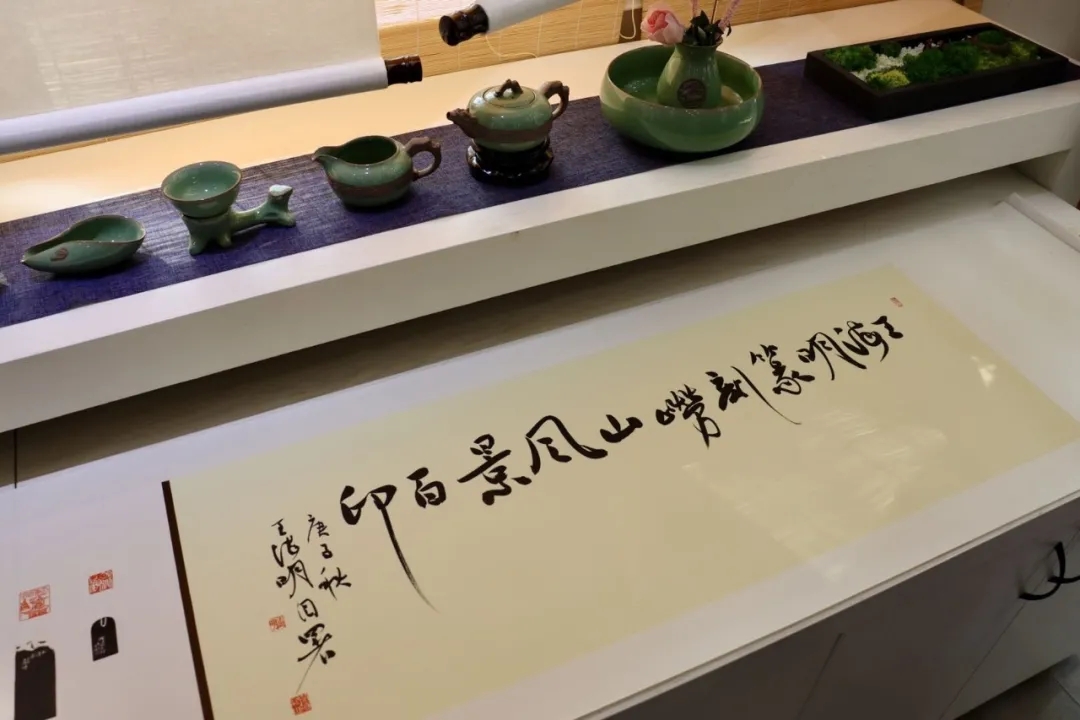 王海明篆刻崂山风景百印
庚子秋
王海明自署